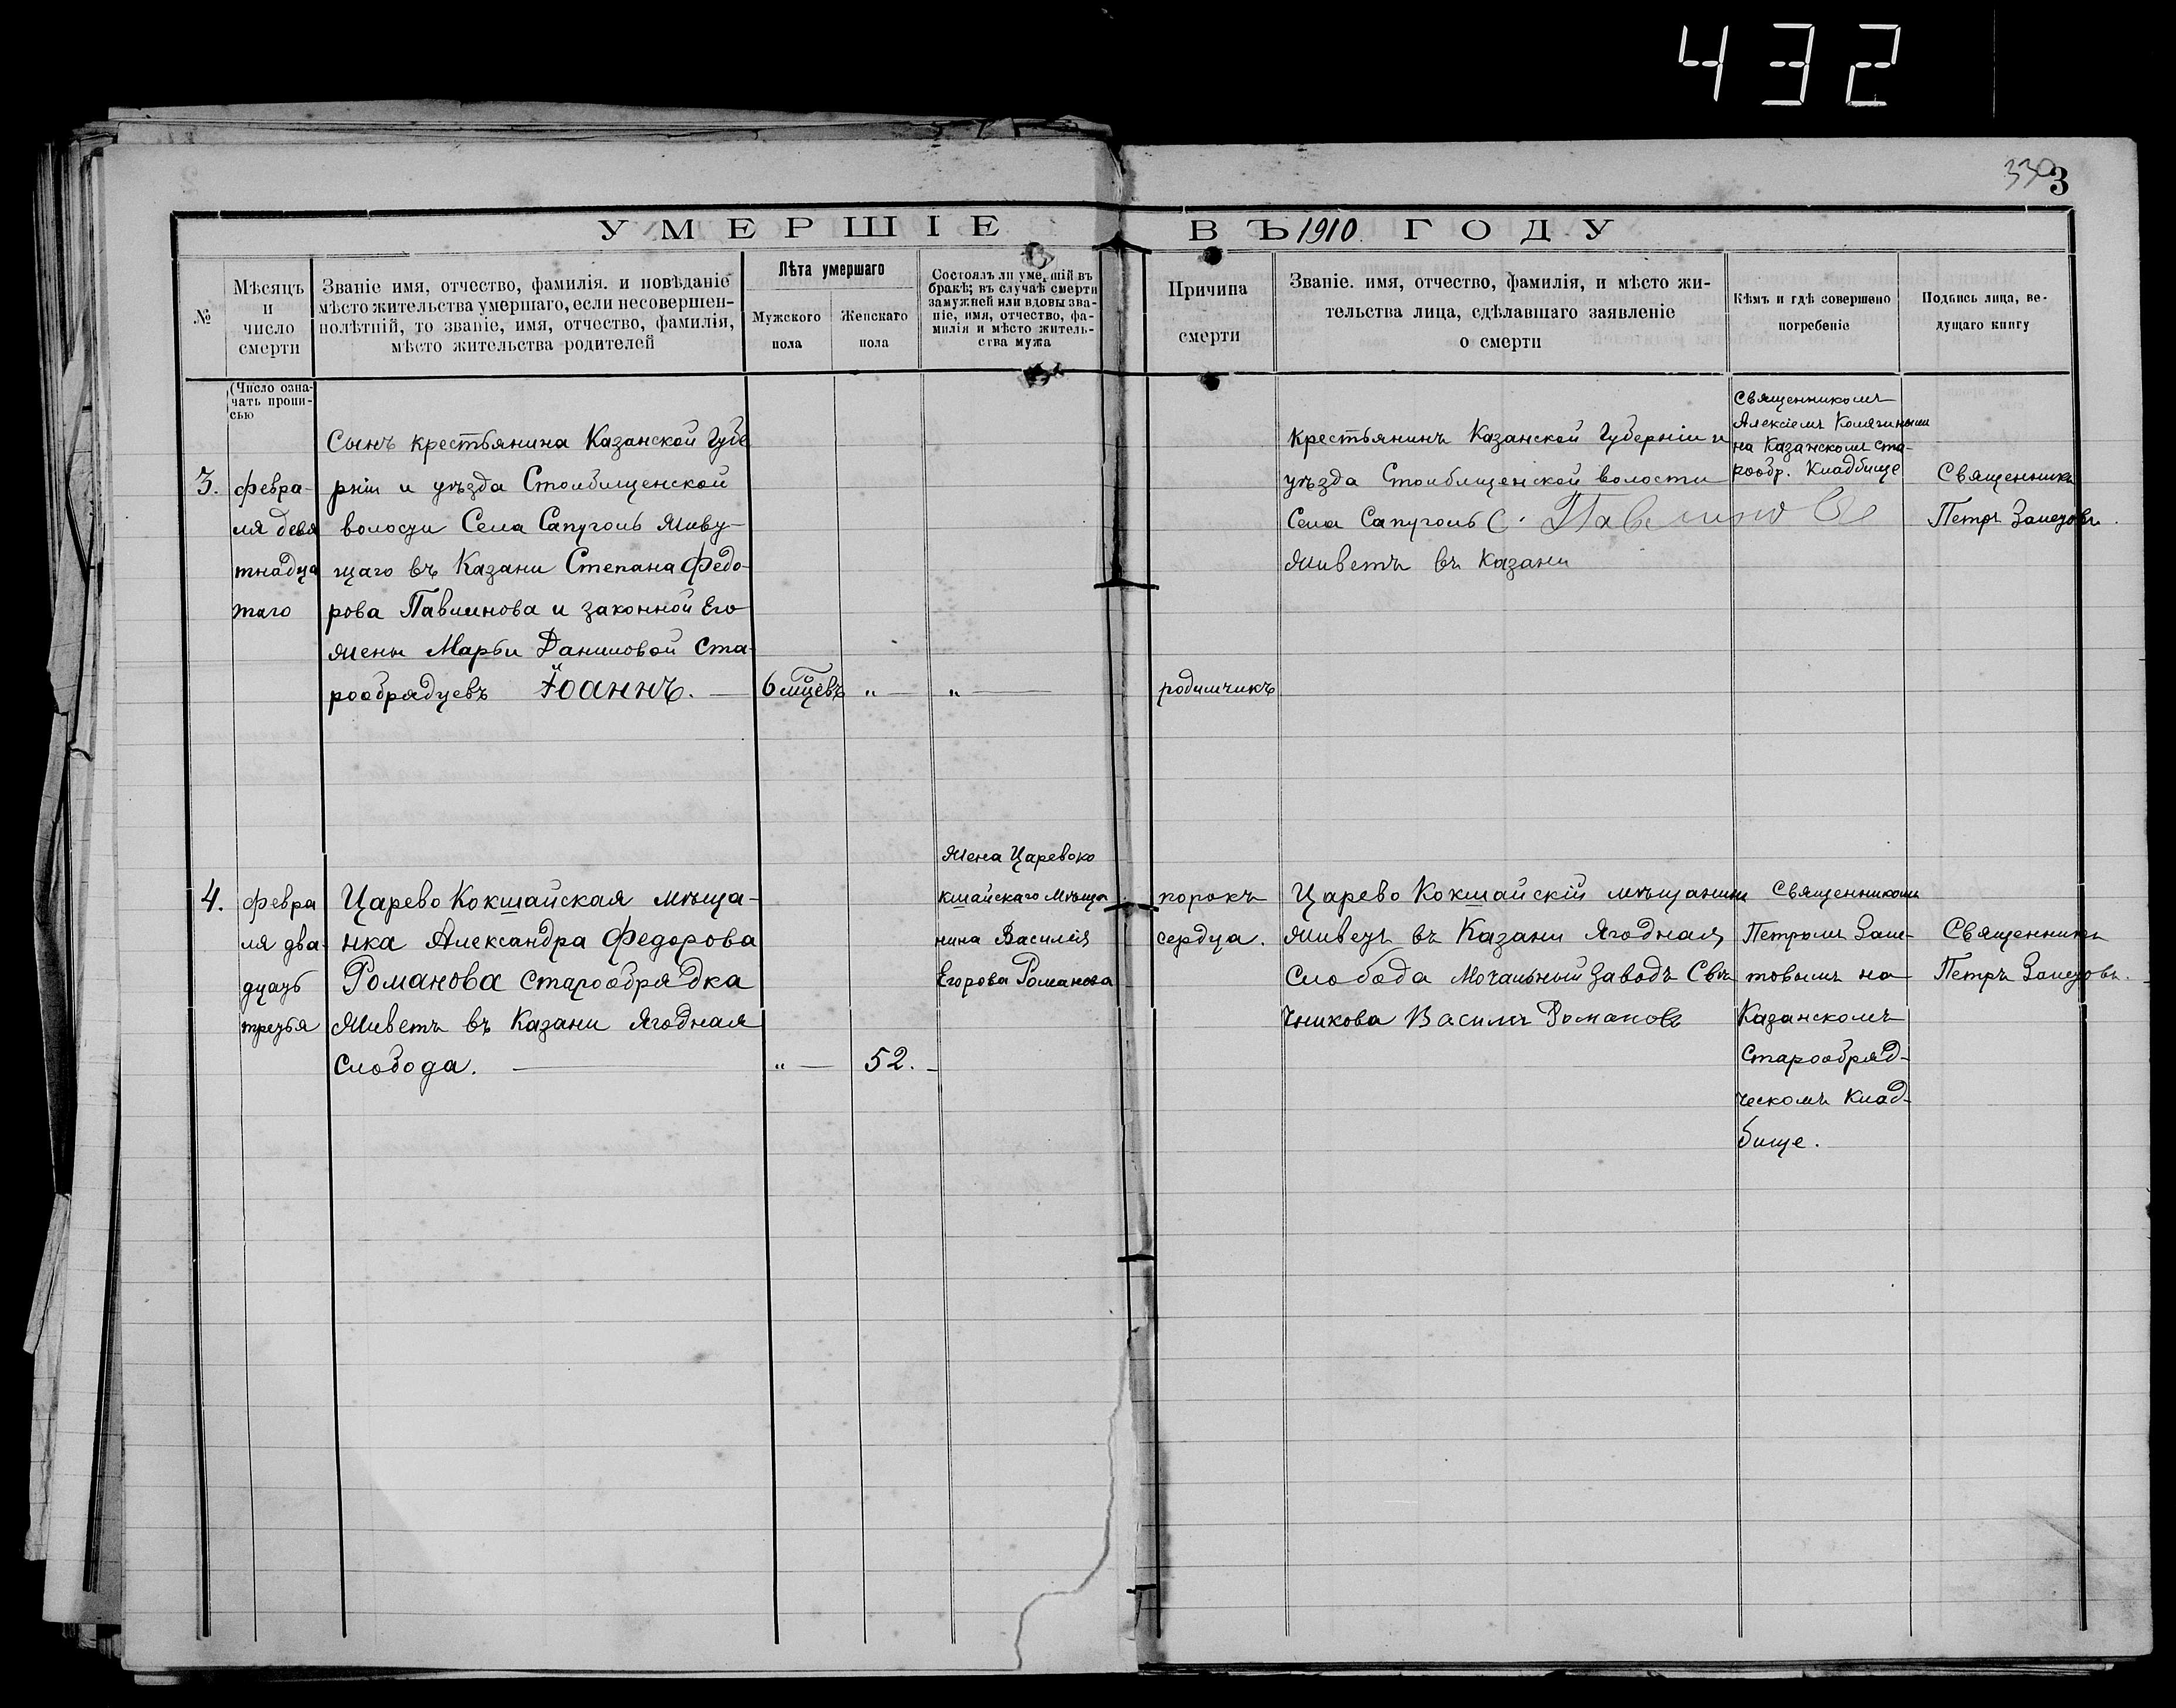 432
330
3
УМЕРШІЕ ВЪ 1910 ГОДУ
№
Мѣсяцъ
и
число
смерти
Званіе имя, отчество, фамилія. и повѣданіе
мѣсто жительства умершаго, если несовершен-
нолѣтній, то званіе, имя, отчество, фамилія,
мѣсто жительства родителей
Лѣта умершаго
Мужского
пола
Женскаго
пола
Состоялъ ли умершій въ
бракѣ; въ случаѣ смерти
замужней или вдовы зва-
ніе, имя, отчество, фа-
милія и мѣсто житель-
ства мужа
Причина
смерти
Званіе. имя, отчество, фамилія, и мѣсто жи-
тельства лица, сдѣлавшаго заявленіе
о смерти
Кѣмъ и гдѣ совершено
погребеніе
Подпись лица, ве-
дущаго книгу
(Число озна-
чать пропи-
сью
3.
февра-
ля девя
тнадца
таго
Сынъ крестьянина Казанской Губе
рніи и уѣзда Столбищенской
волости Села Сапуголь живу-
щаго въ Казани Степана Федо-
рова Павлинова и законной Его
жены Марьи Даниловой Ста-
рообрядцевъ Іоаннъ. —
6 мцевъ
„ —
„ —
родимчикъ
крестьянинъ Казанской Губерніи и
уѣзда Столбищенской волости
Села Сапуголь С. Павлиновъ
живетъ въ Казани
Священникомъ
Алексіемъ Калягинымъ
на Казанскомъ ста-
рообр. Кладбище
Священникъ
Петръ Залетовъ.
4.
февра
ля два-
дцать
третья
Царево Кокшайская мѣща-
нка Александра Федорова
Романова старообрядка
живетъ въ Казани Ягодная
слобода. —
„ —
52. -
жена Царевоко
кшайскаго мѣща
нина Василія
Егорова Романова
порокъ
сердца.
Царево Кокшайскій мѣщанинъ
живетъ въ Казани Ягодная
Слобода Мочальный заводъ Свѣ
чникова Василій Романовъ
Священникомъ
Петромъ Зале-
товымъ на
Казанскомъ
Старообряд-
ческомъ клад-
бище.
Священникъ
Петръ Залетовъ.